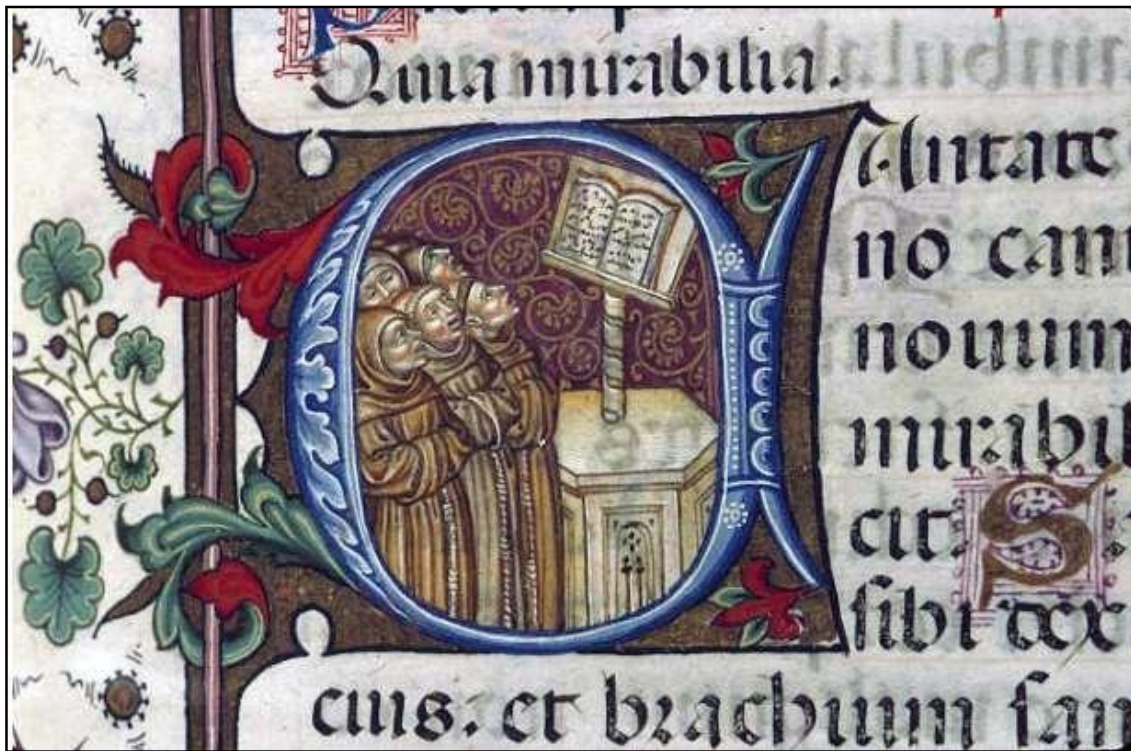 Quia mirabilia.
CAntate
no can
nouum
mirabil
cit. S
sibi dex
eius. et brachium san